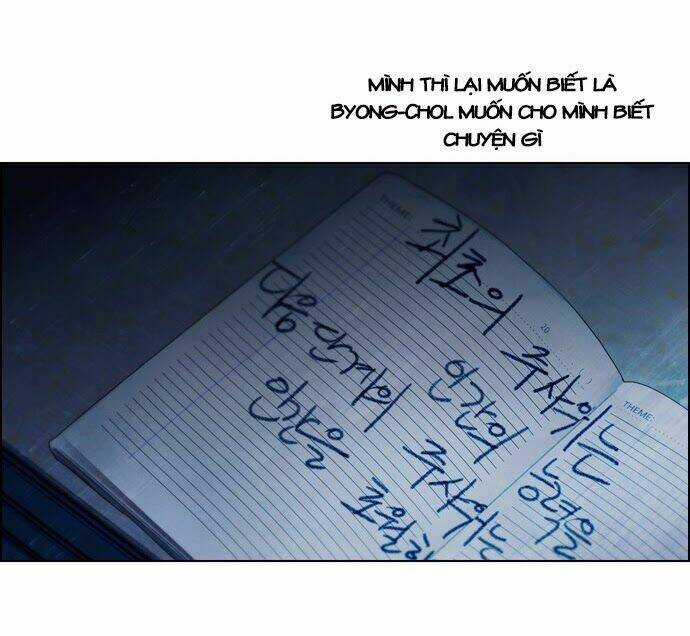 MÌNH THÌ LẠI MUỐN BIẾT LÀ
BYONG-CHOL MUỐN CHO MÌNH BIẾT
CHUYỆN GÌ
THEME:
최초의 주사위는
20
인간의 능력을
다음 단계의 주사위는
인간을
THEME: